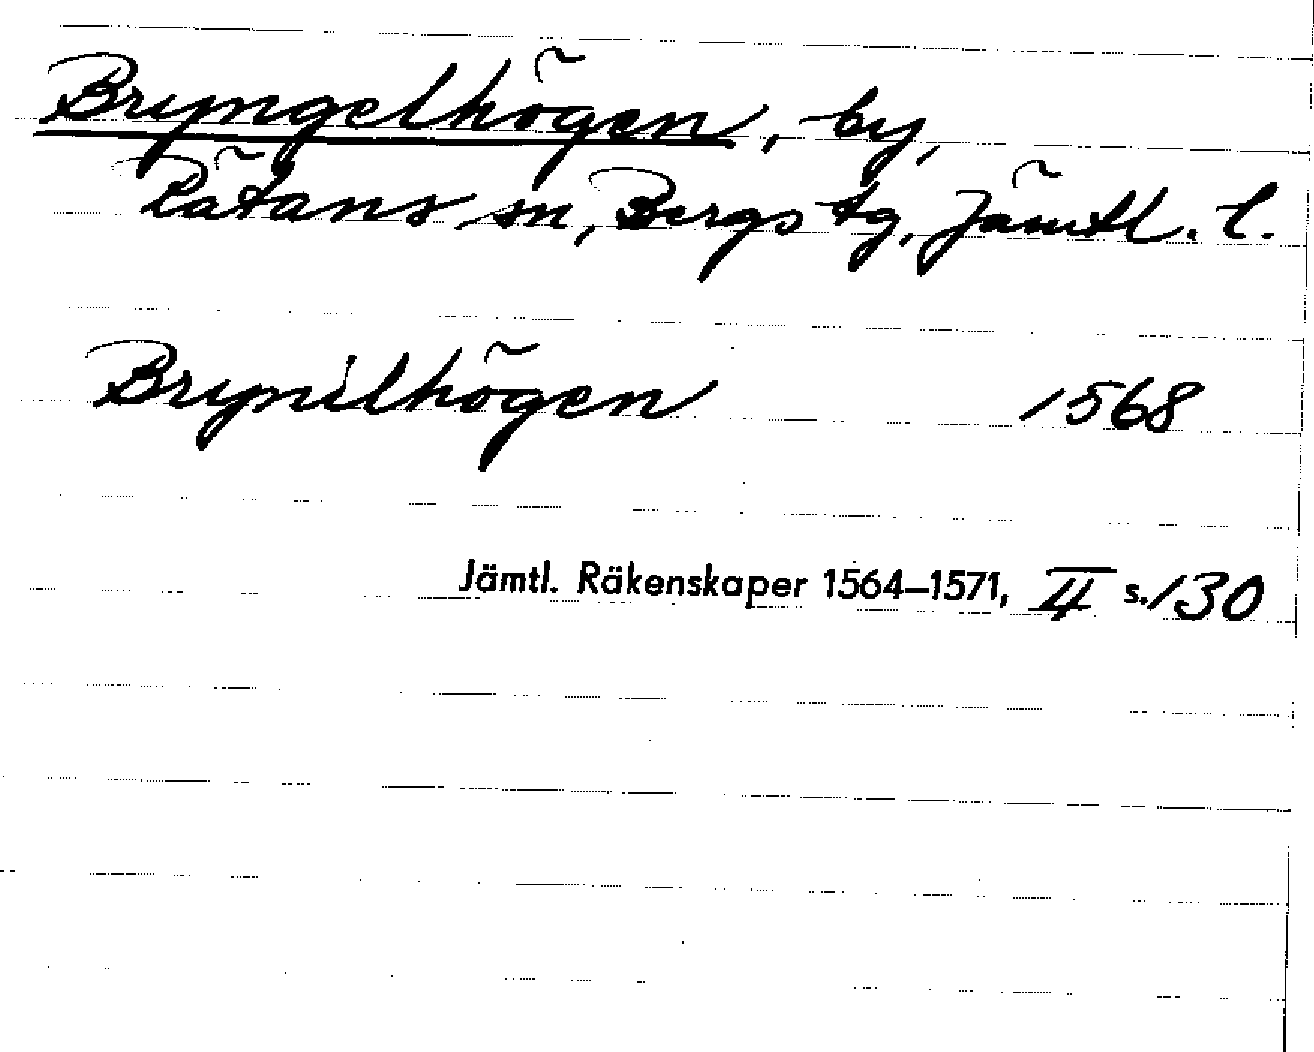 Bryngelhögen, by,
Rätans sn, Bergs tg, Jämtl. l.
Brynilhögen 1568
Jämtl. Räkenskaper 1564–1571, II s. 130